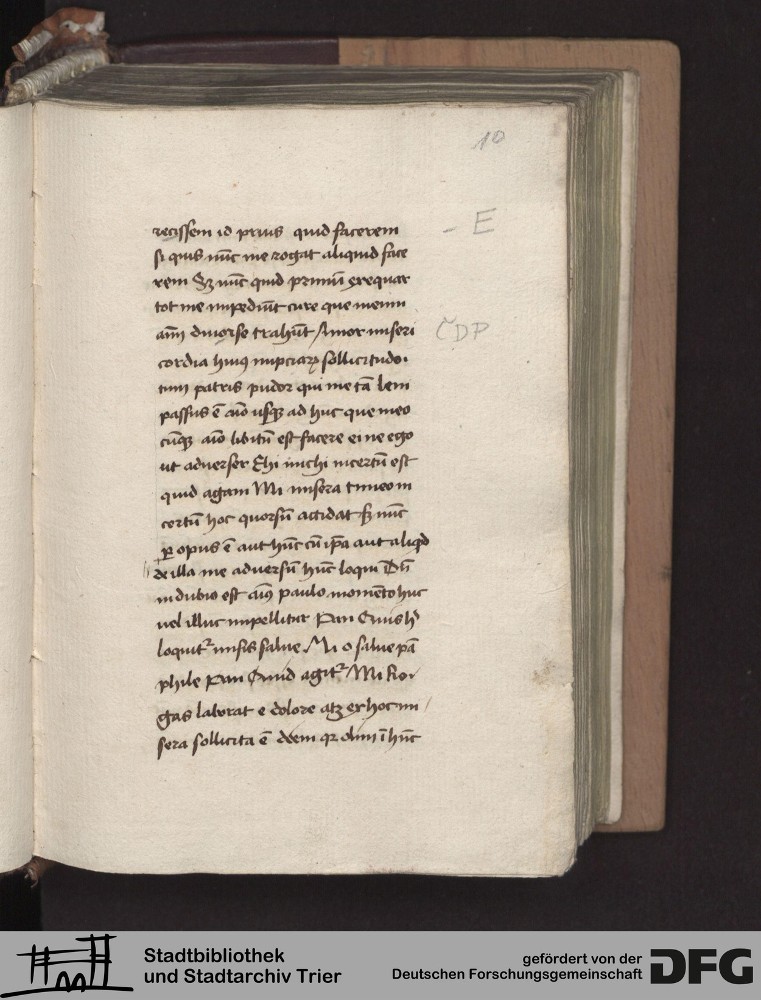 10
recissem id prius quid facerem
- E
si quis nũc me rogat aliquid face
rem Sꝫ nũc quid primũ exequar
tot me impediũt cure que meum
aĩm diuorse trahũt Amor miseri
CDP
cordia huiꝰ nupciaꝝ sollicitudo
tum patris pudor qui me tã leni
passus ẽ aĩo usqꝫ ad huc que meo
cũqꝫ aĩo libitũ est facere ei ne ego
ut aduerser Ehi michi incertũ est
quid agam Mi misera timeo in
certũ hoc quorsũ accidat sꝫ nũc
ꝑ opus ẽ aut hũc cũ ip̃a aut aliqͥd
de illa me aduersũ hũc loqui Dũ
in dubio est aĩus paulo momẽto huc
uel illuc impellitur Pan Quis h̃
loquitᷣ misis salue Mi o salue pã
phile Pan Quid agitᷣ Mi Ro
gas laborat e dolore atqꝫ ex hoc mi
sera sollicita ẽ diem qꝛ olim ĩ hũc
Stadtbibliothek
und Stadtarchiv Trier
gefördert von der
Deutschen Forschungsgemeinschaft
DFG